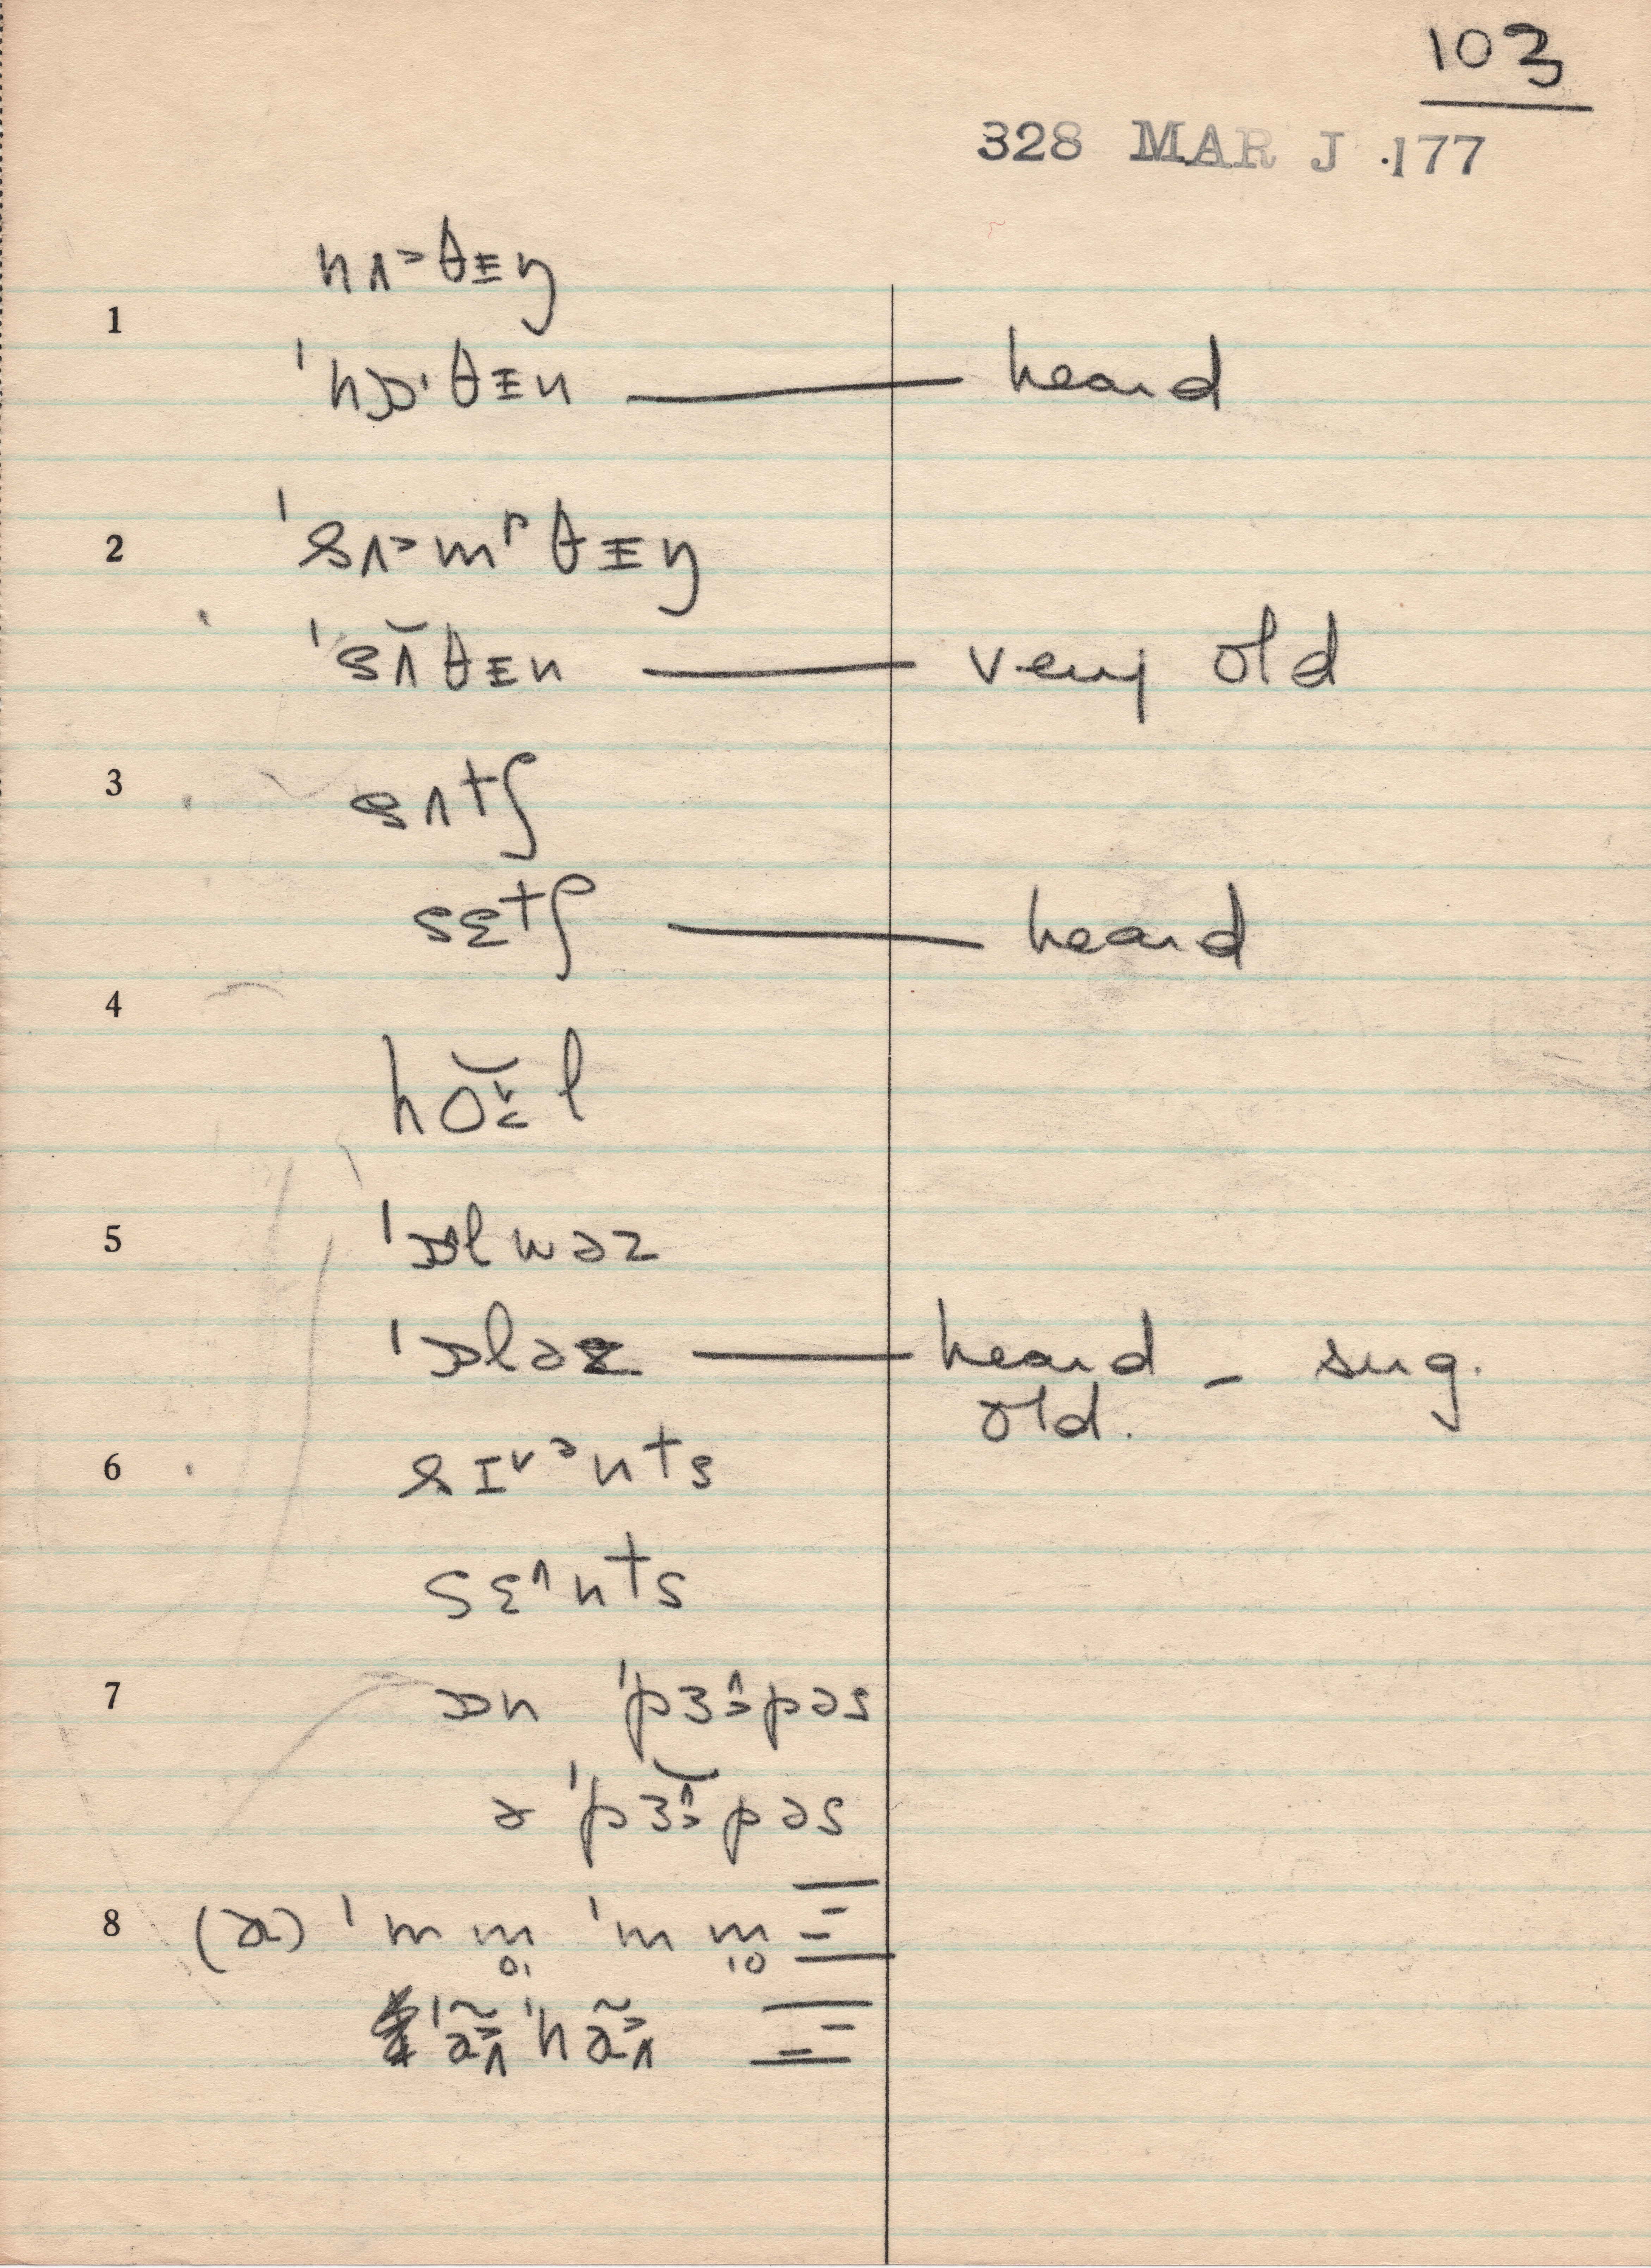 103
328 MAR J 177
nʌ˃θɪŋ
1
ˈnɒ·θɪn — heard
2 ˈsʌ˃mᵖθɪŋ
ˈsʌ̆θɪn — very old
3 sʌtʃ
sɛtʃ — heard
4
hol
5 ˈɒlwəz
ˈɒləz — heard - sug.
old.
6 sɪ˅ᵊnts
sɛ˄nts
7 ɒn ˈpɜ˄pəs
ə ˈpɜ˄pəs
8 (a) ˈm m̥ ˈm m̥
ˈə̃ ˈhə̃